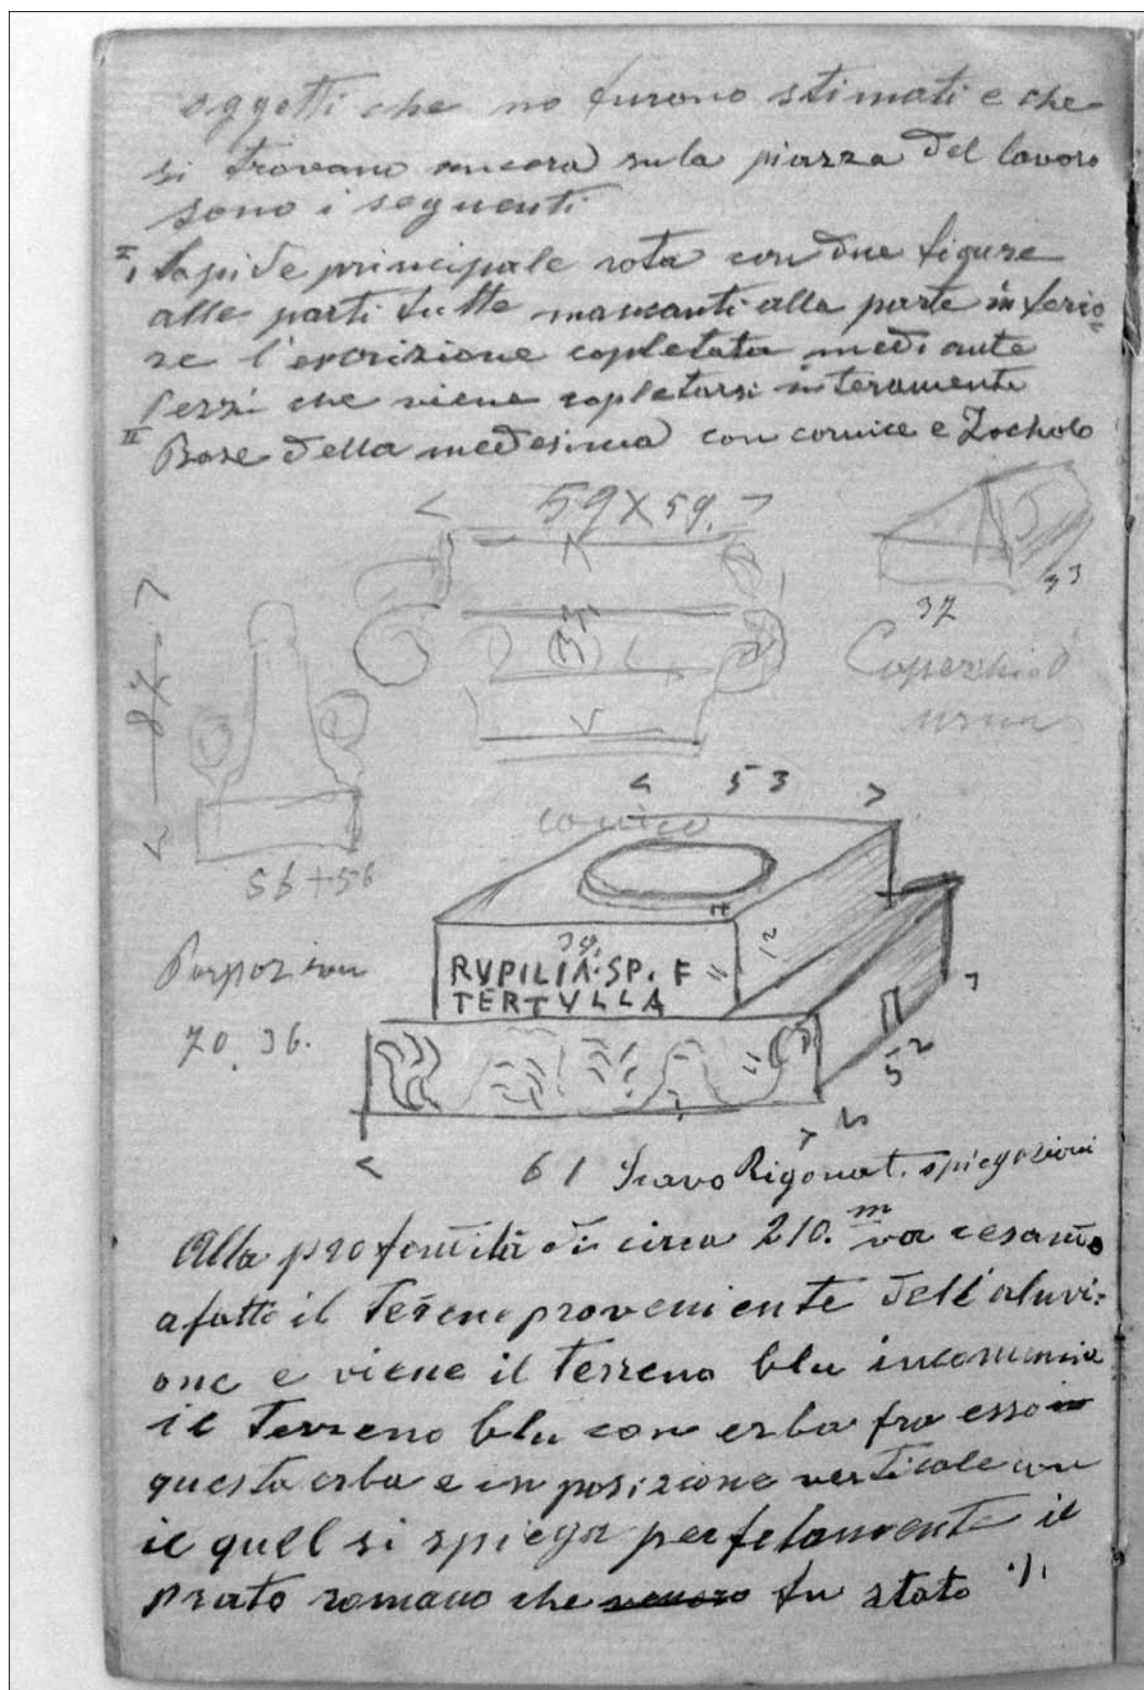 oggetti che no furono stimati e che
si trovano ancora sula piazza del lavoro
sono i seguenti
I Lapide principale rota con due figure
alle parti tutte mancanti alla parte inferio=
re l'escrizione copletata mediante
pezzi che viene copletarsi interamente
II Base della medesima con cornice e Zocholo
< 59 X 59. >
33
37
Coperchio d
urna
56 + 56
< 53 >
conico
39.
12
RVPILIA·SP. F
TERTVLLA
70. 36.
52
< 61 >
Scavo Rigonat. spiegazioni
Alla profondità di circa 210. m va cesando
afatto il Tereno proveniente dell'aluvi=
one e viene il terreno blu incomincia
il Terreno blu con erba fra esso
questa erba e in posizione verticale con
il quel si spiega perfetamente il
prato romano che fu stato ·/·